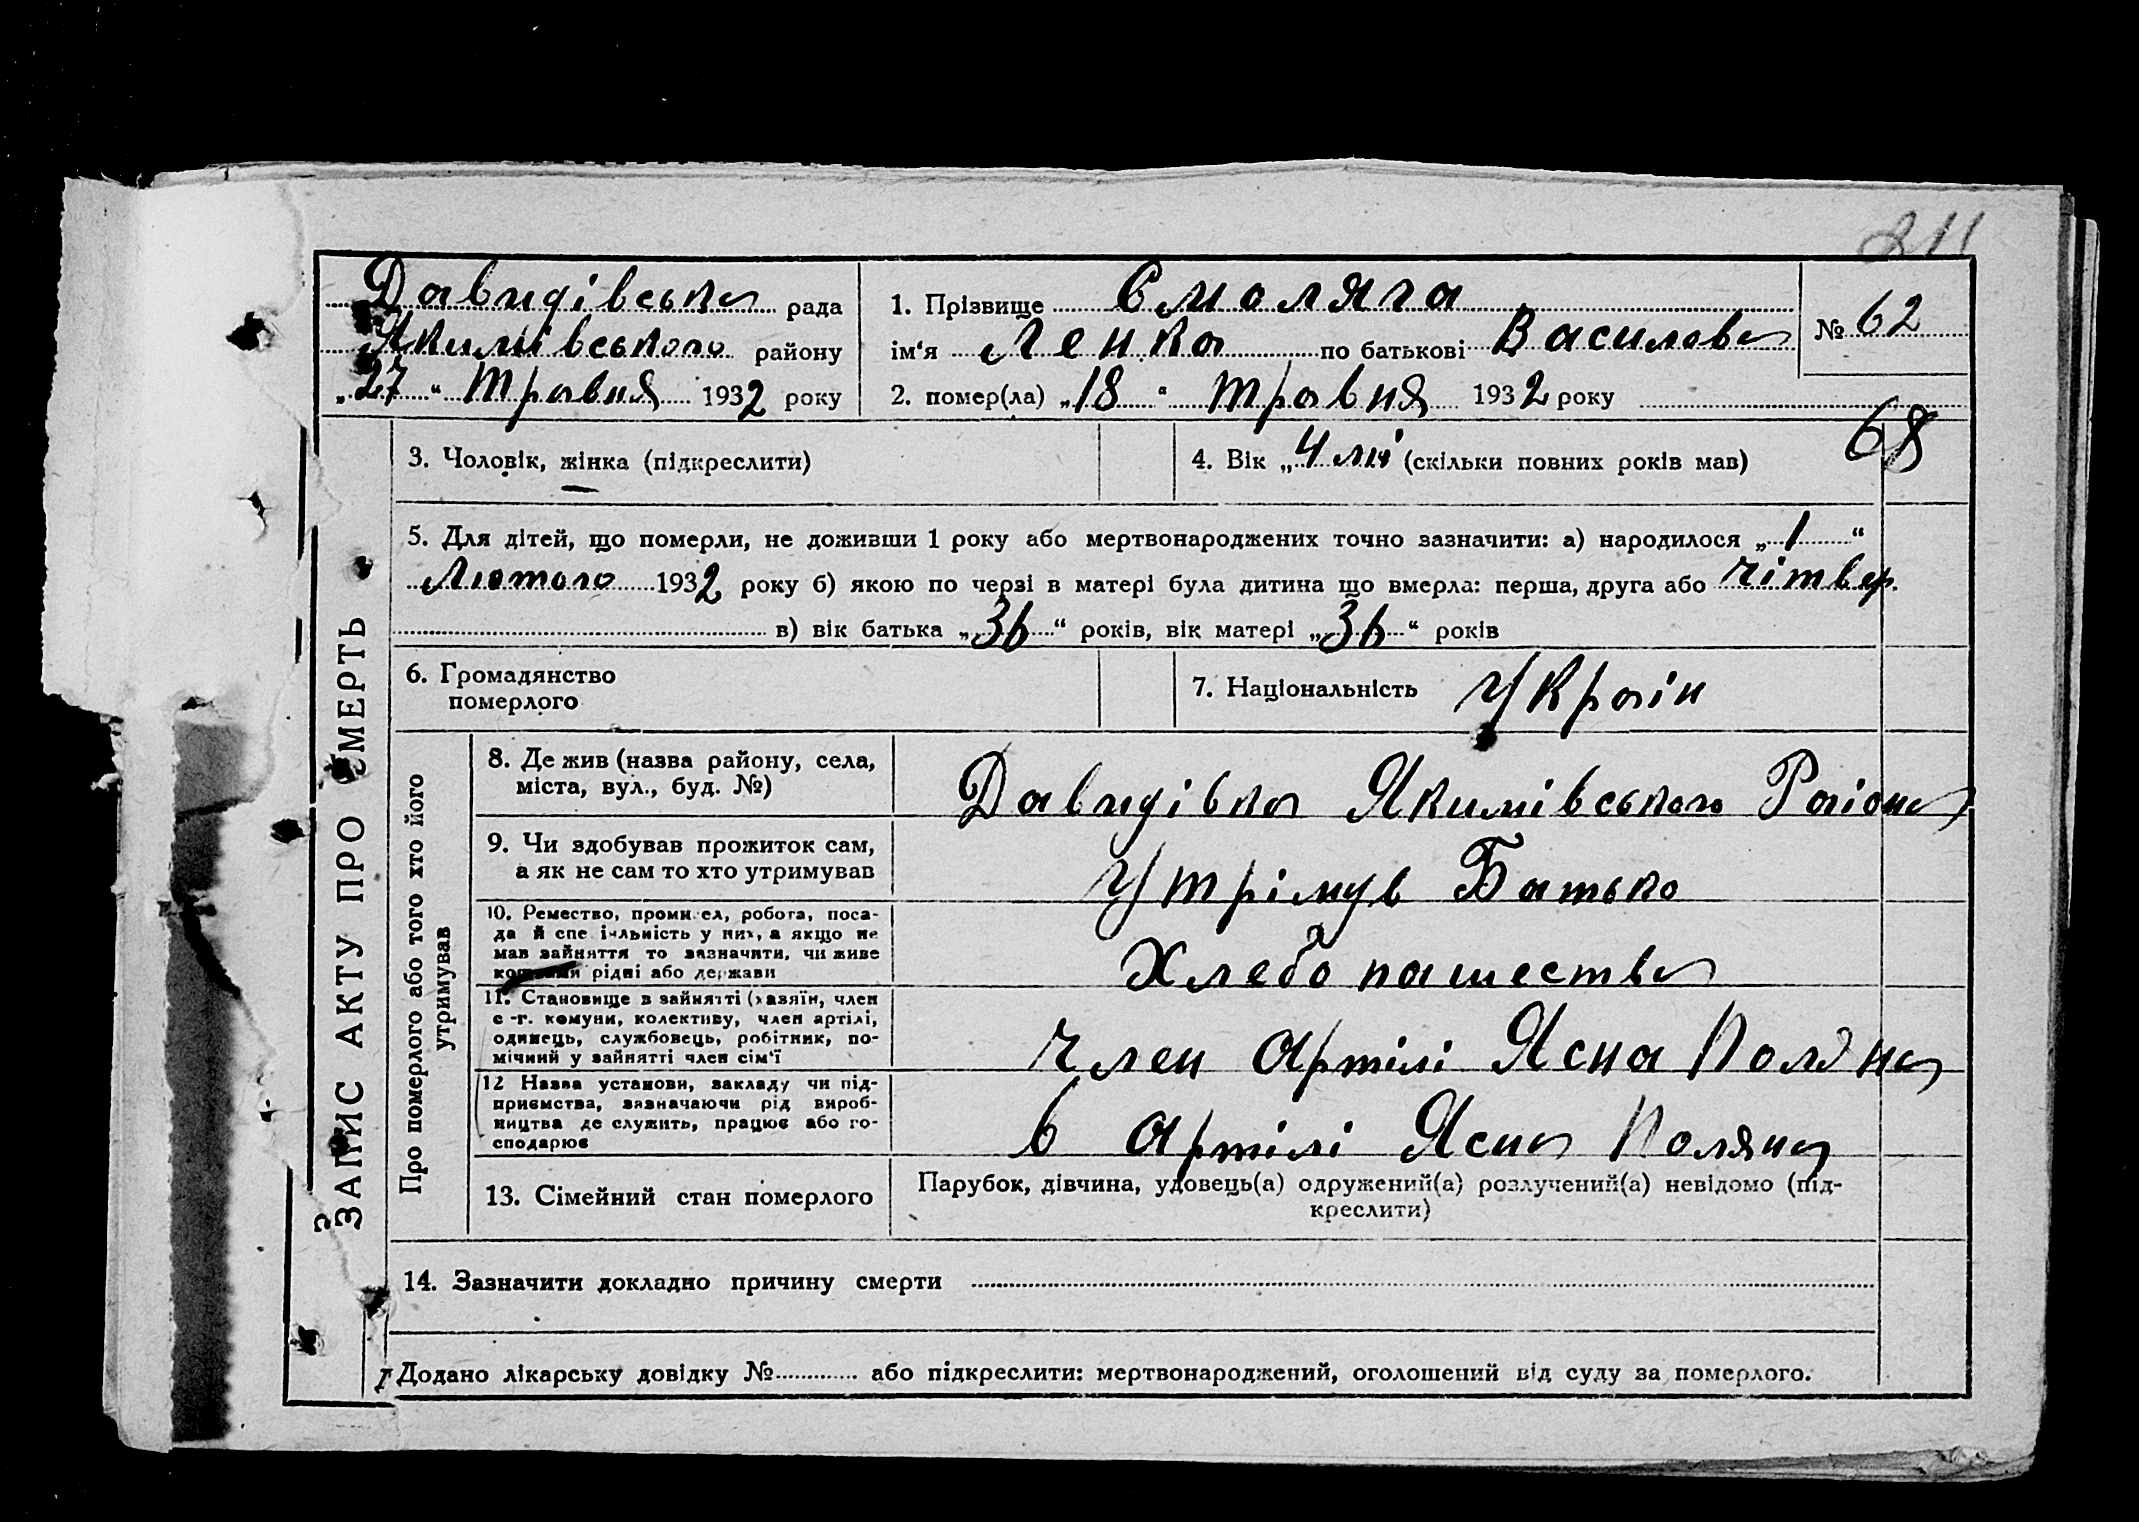 211
Давидівська рада
Якимівського району
„27" Травня 1932 року
1. Прізвище Смоляга
ім'я Ленка по батькові Василова
2. помер(ла) „18" травня 1932 року
№ 62
68
ЗАПИС АКТУ ПРО СМЕРТЬ
3. Чоловік, жінка (підкреслити)
4. Вік „4 міс (скільки повних років мав)
5. Для дітей, що померли, не доживши 1 року або мертвонароджених точно зазначити: а) народилося „1"
Лютого 1932 року б) якою по черзі в матері була дитина що вмерла: перша, друга або чітвер.
в) вік батька „36" років, вік матері „36" років
6. Громадянство
померлого
7. Національність Україн
Про померлого або того хто його
утримував
8. Де жив (назва району, села,
міста, вул., буд. №)
Давидівка Якимівського Раіона
9. Чи здобував прожиток сам,
а як не сам то хто утримував
Утрімув Батько
10. Ремество, промисел, робота, поса-
да й спеціяльність у них, а якщо не
мав зайняття то зазначити, чи живе
коштами рідні або держави
Хлебопашества
11. Становище в зайнятті (хазяїн, член
с.-г. комуни, колективу, член артілі,
одинець, службовець, робітник, по-
мічний у зайнятті член сім'ї
член артілі Ясна Поляна
12 Назва установи, закладу чи під-
приємства, зазначаючи рід вироб-
ництва де служить, працює або го-
сподарює
в артілі Ясна Поляна
13. Сімейний стан померлого
Парубок, дівчина, удовець(а) одружений(а) розлучений(а) невідомо (під-
креслити)
14. Зазначити докладно причину смерти
Додано лікарську довідку № або підкреслити: мертвонароджений, оголошений від суду за померлого.